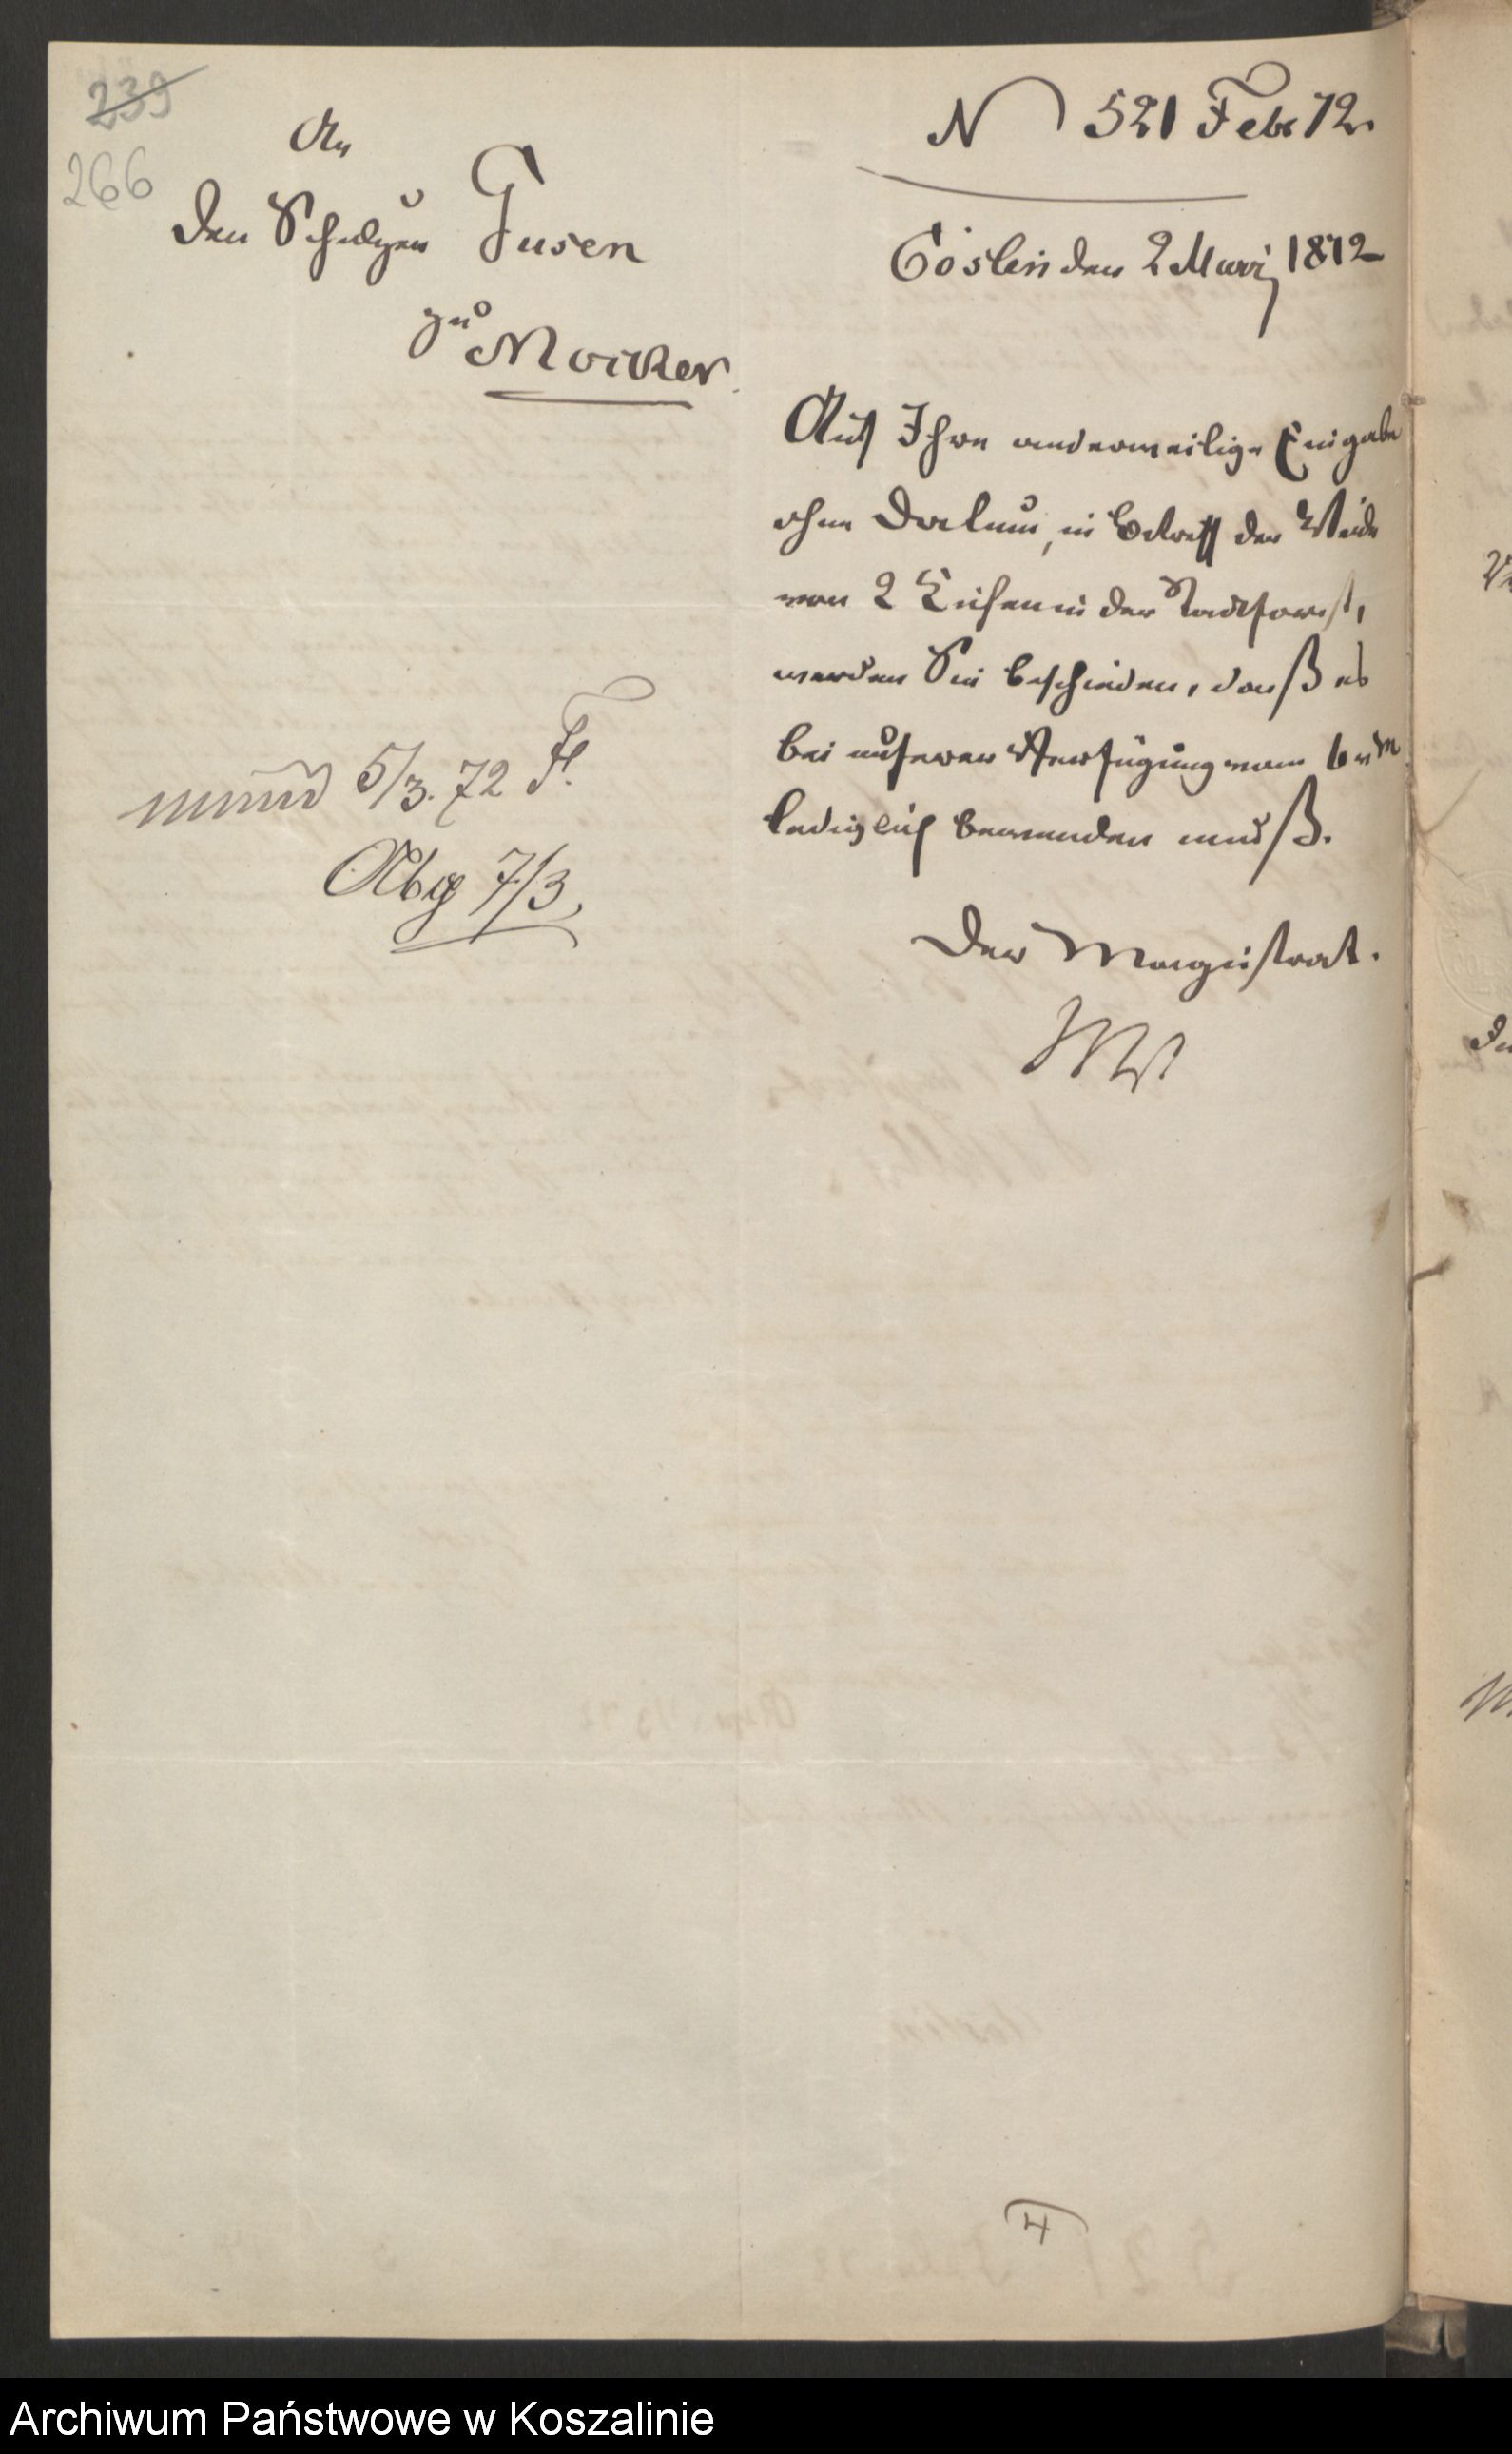 239
266
An
den Schulzen Gusen
zu Mocker
N 521 Febr 72.
Cöslin den 2 März 1872
Auf Ihre anderweitige Eingabe
ohne Datum, in Betreff der Weide
von 2 Kühen in der Stadtforst,
werden Sie beschieden, daß es
bei unserer Verfügung vom
lediglich bewenden muß.
Der Magistrat.
mund 5/3. 72 F.
Abg 7/3
4
Archiwum Państwowe w Koszalinie